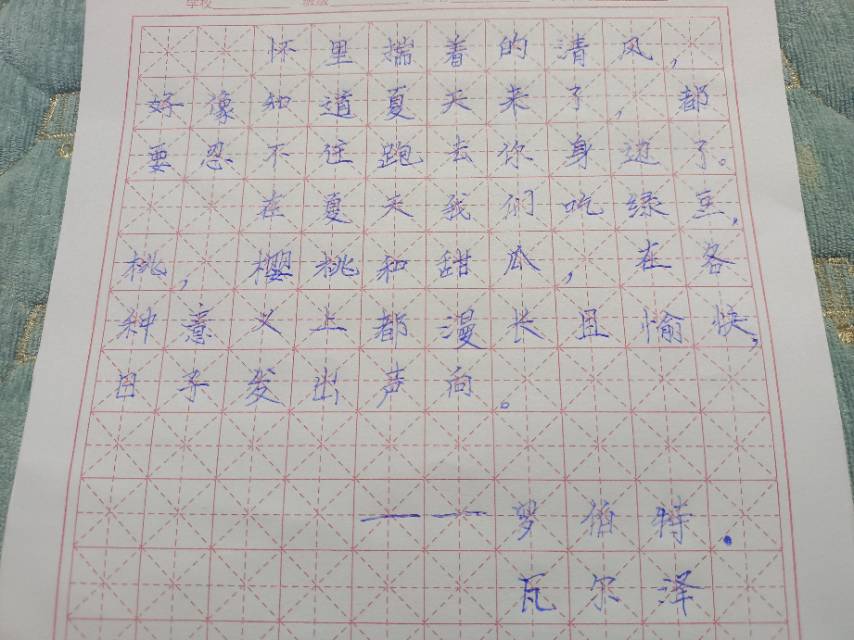 学校
班级
怀里揣着的清风，
好像知道夏天来了，都
要忍不住跑去你身边了。
在夏天我们吃绿豆，
桃，樱桃和甜瓜，在各
种意义上都漫长且愉快，
日子发出声向。
——罗伯特.
瓦尔泽